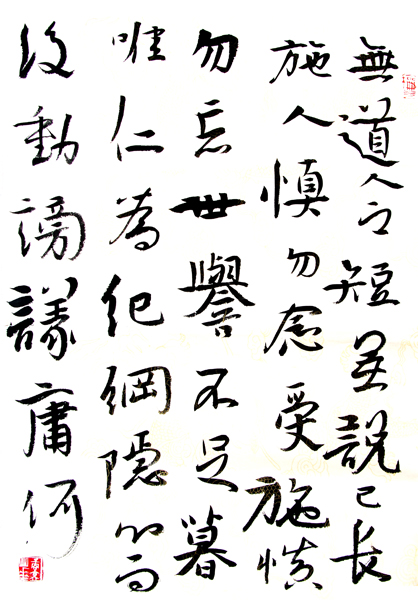 無道人之短無說己長
施人慎勿念受施慎
勿忘世譽不足暮
唯仁為紀綱隱心而
後動謗議庸何